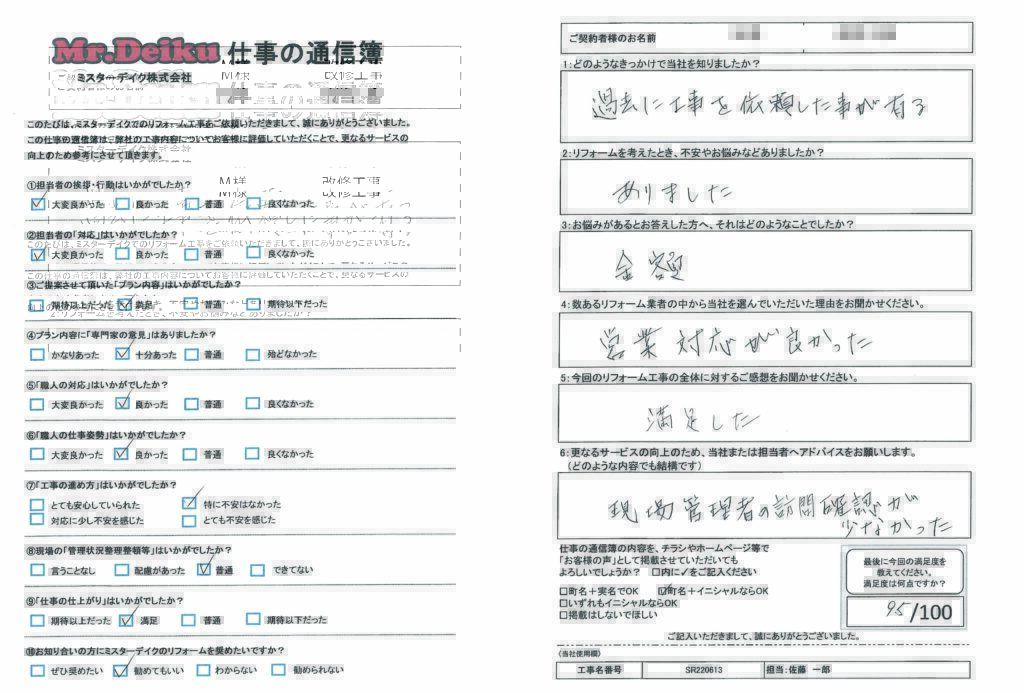 Mr.Deiku 仕事の通信簿
ミスターデイク株式会社
M様 改修工事
このたびは、ミスターデイクでのリフォーム工事をご依頼いただきまして、誠にありがとうございました。
この仕事の通信簿は、弊社の工事内容についてお客様に評価していただくことで、更なるサービスの
向上のため参考にさせて頂きます。
①担当者の挨拶・行動はいかがでしたか?
M様 改修工事
☑ 大変良かった □ 良かった □ 普通 □ 良くなかった
②担当者の「対応」はいかがでしたか?
☑ 大変良かった □ 良かった □ 普通 □ 良くなかった
③ご提案させて頂いた「プラン内容」はいかがでしたか?
□ 期待以上だった ☑ 満足 □ 普通 □ 期待以下だった
④プラン内容に「専門家の意見」はありましたか?
□ かなりあった ☑ 十分あった □ 普通 □ 殆どなかった
⑤「職人の対応」はいかがでしたか?
□ 大変良かった ☑ 良かった □ 普通 □ 良くなかった
⑥「職人の仕事姿勢」はいかがでしたか?
□ 大変良かった ☑ 良かった □ 普通 □ 良くなかった
⑦「工事の進め方」はいかがでしたか?
□ とても安心していられた ☑ 特に不安はなかった
□ 対応に少し不安を感じた □ とても不安を感じた
⑧現場の「管理状況整理整頓等」はいかがでしたか?
□ 言うことなし □ 配慮があった ☑ 普通 □ できてない
⑨「仕事の仕上がり」はいかがでしたか?
□ 期待以上だった ☑ 満足 □ 普通 □ 期待以下だった
⑩お知り合いの方にミスターデイクのリフォームを奨めたいですか?
□ ぜひ奨めたい ☑ 勧めてもいい □ わからない □ 勧められない
ご契約者様のお名前
1:どのようなきっかけで当社を知りましたか?
過去に工事を依頼した事が有る
2:リフォームを考えたとき、不安やお悩みなどありましたか?
ありました
3:お悩みがあるとお答えした方へ、それはどのようなことでしたか?
金額
4:数あるリフォーム業者の中から当社を選んでいただいた理由をお聞かせください。
営業対応が良かった
5:今回のリフォーム工事の全体に対するご感想をお聞かせください。
満足した
6:更なるサービスの向上のため、当社または担当者へアドバイスをお願いします。
(どのような内容でも結構です)
現場管理者の訪問確認が
少なかった
仕事の通信簿の内容を、チラシやホームページ等で
「お客様の声」として掲載させていただいても
よろしいでしょうか? □内に✓をご記入ください
□町名+実名でOK ☑町名+イニシャルならOK
□いずれもイニシャルならOK
□掲載はしないでほしい
最後に今回の満足度を
教えてください。
満足度は何点ですか?
95/100
ご記入いただきまして、誠にありがとうございました。
(当社使用欄)
工事名番号 SR220613 担当:佐藤 一郎